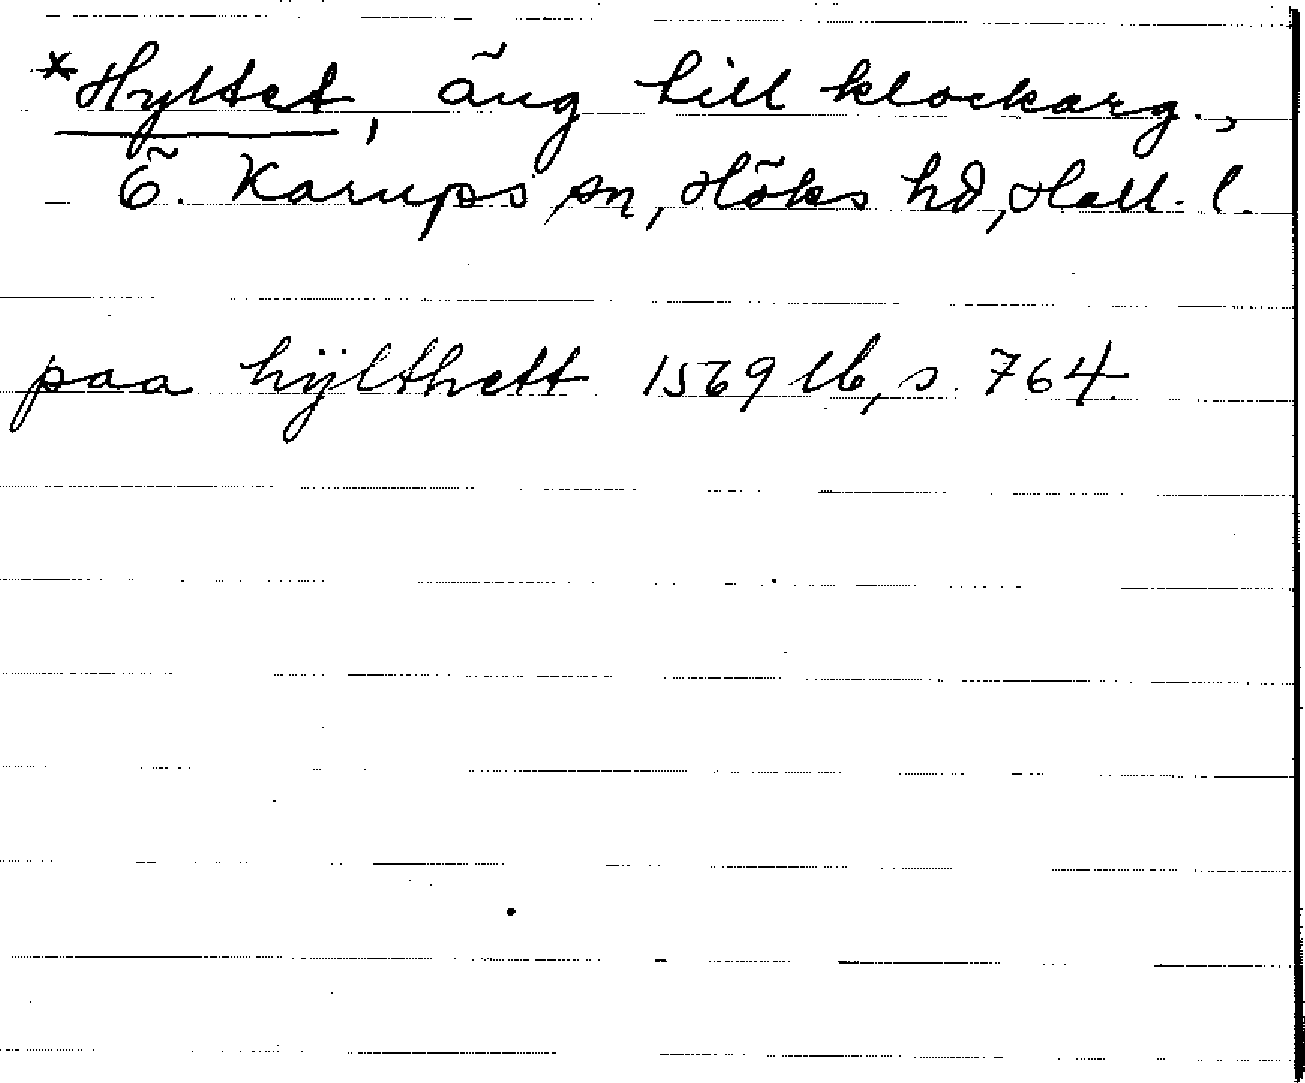 *Hyltet, äng till klockarg.,
Ö. Karups sn, Höks hd, Hall. l.
paa hÿlthett 1569 lb, s. 764.